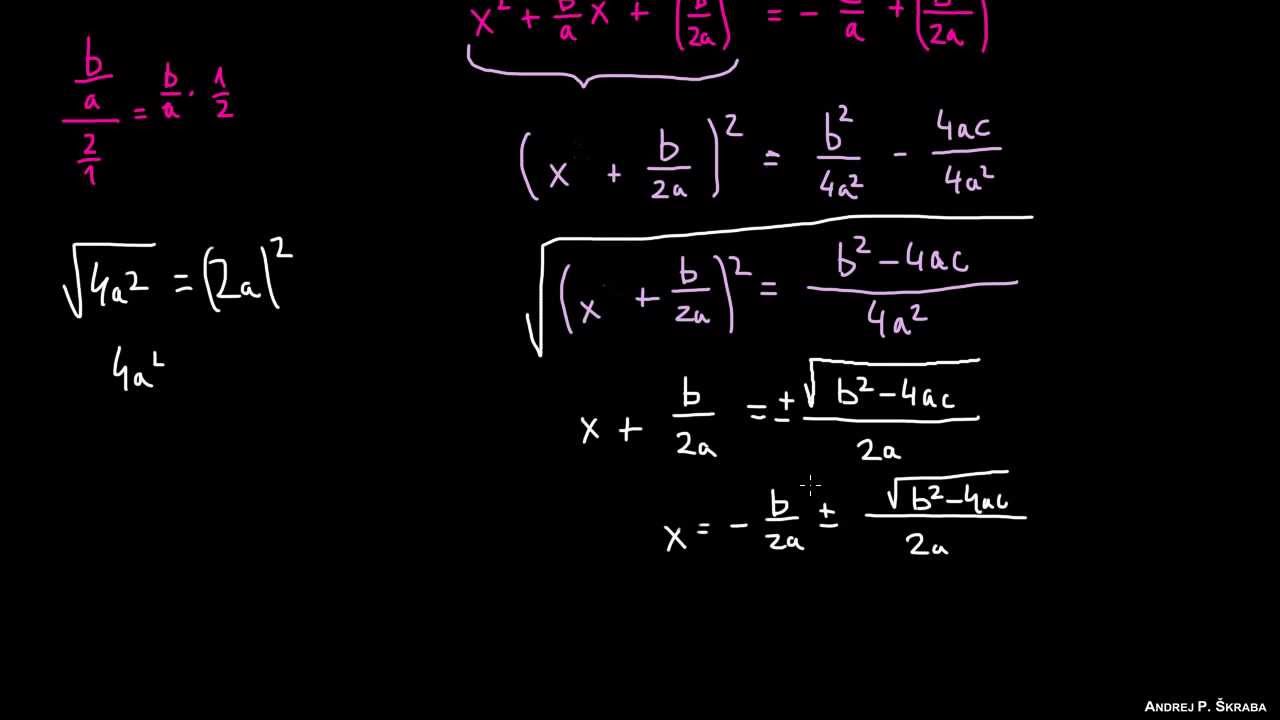 x² + b/a x + (b/2a) = - /a + (b/2a)
b/a / 2/1 = b/a · 1/2
(x + b/2a)² = b²/4a² - 4ac/4a²
√4a² = (2a)²
√(x + b/2a)² = b² - 4ac / 4a²
4a²
x + b/2a = ± √b² - 4ac / 2a
x = - b/2a ± √b² - 4ac / 2a
ANDREJ P. ŠKRABA